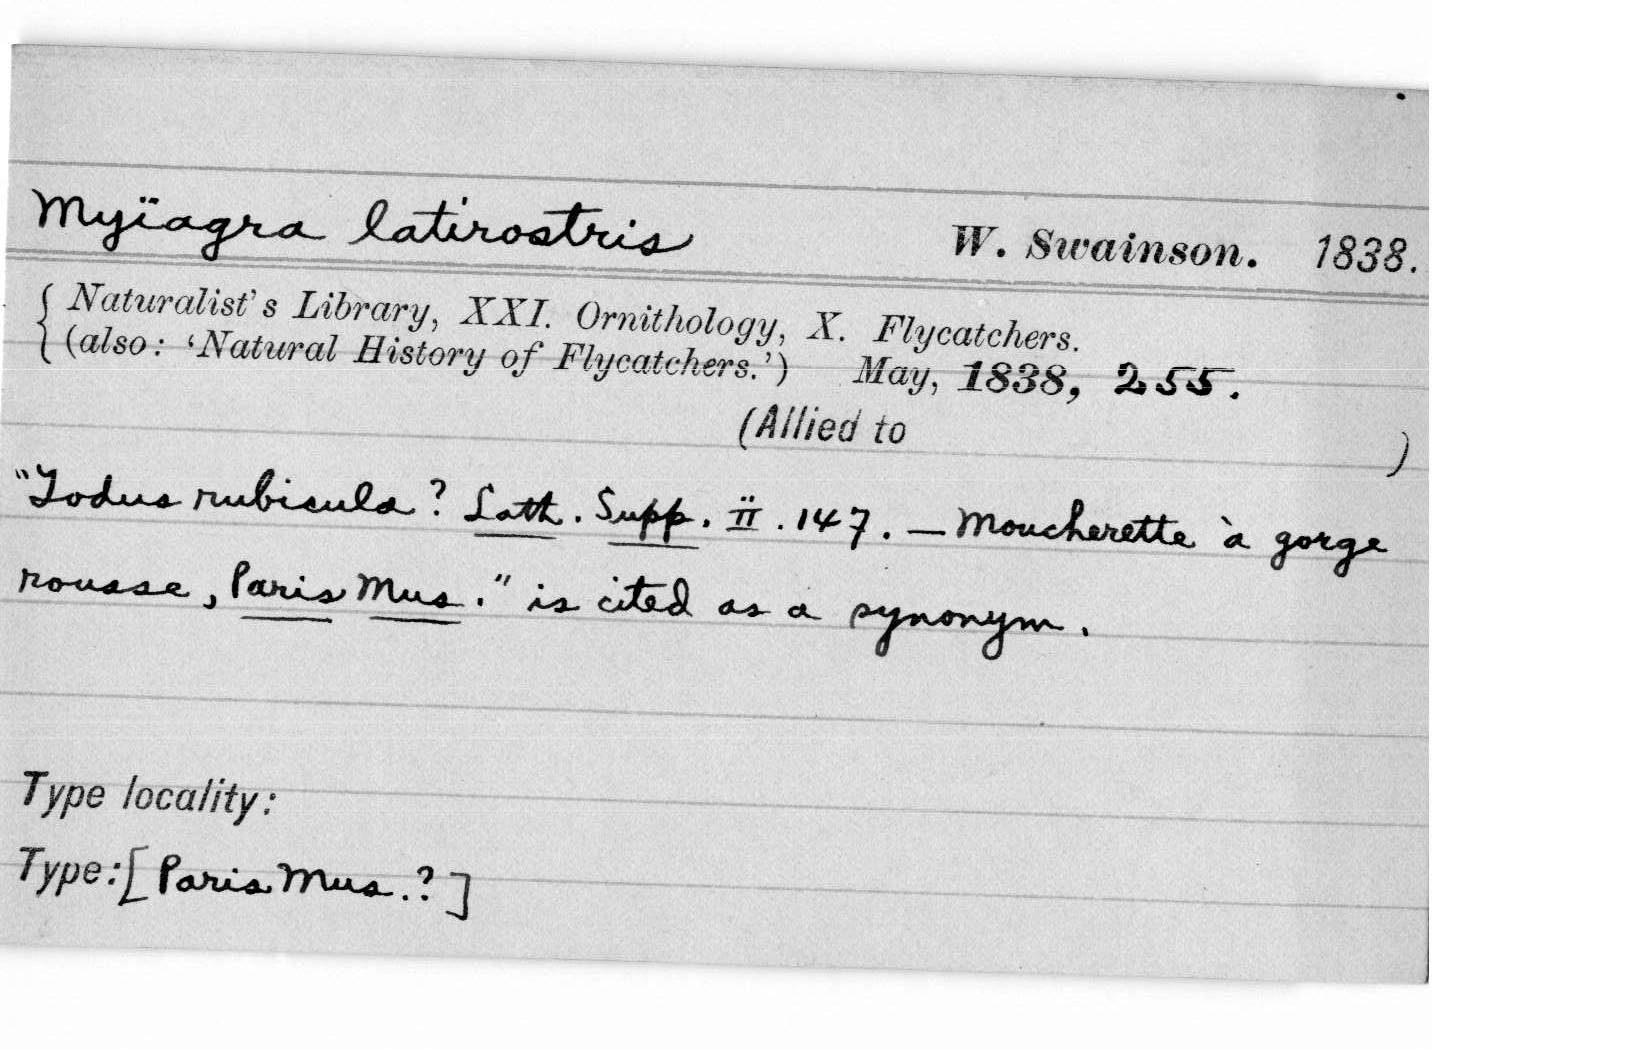 Myïagra latirostris W. Swainson. 1838.
{ Naturalist's Library, XXI. Ornithology, X. Flycatchers.
(also: 'Natural History of Flycatchers.') May, 1838, 255.
(Allied to )
"Todus rubicula? Lath. Supp. ii. 147. — Moucherette à gorge
rousse, Paris Mus." is cited as a synonym.
Type locality:
Type: [Paris Mus.?]